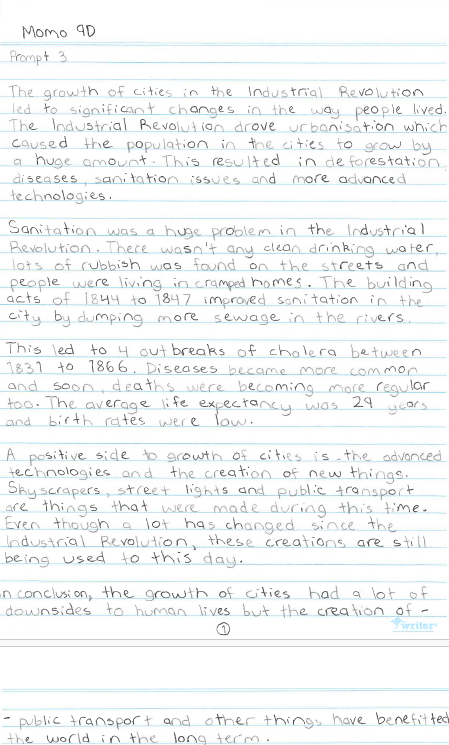 Momo 9D
Prompt 3
The growth of cities in the Industrial Revolution
led to significant changes in the way people lived.
The Industrial Revolution drove urbanisation which
caused the population in the cities to grow by
a huge amount. This resulted in deforestation,
diseases, sanitation issues and more advanced
technologies.
Sanitation was a huge problem in the Industrial
Revolution. There wasn't any clean drinking water,
lots of rubbish was found on the streets and
people were living in cramped homes. The building
acts of 1844 to 1847 improved sanitation in the
city by dumping more sewage in the rivers.
This led to 4 outbreaks of cholera between
1831 to 1866. Diseases became more common
and soon, deaths were becoming more regular
too. The average life expectancy was 29 years
and birth rates were low.
A positive side to growth of cities is the advanced
technologies and the creation of new things.
Skyscrapers, street lights and public transport
are things that were made during this time.
Even though a lot has changed since the
Industrial Revolution, these creations are still
being used to this day.
n conclusion, the growth of cities had a lot of
downsides to human lives but the creation of -
1
writer
- public transport and other things have benefitted
the world in the long term.